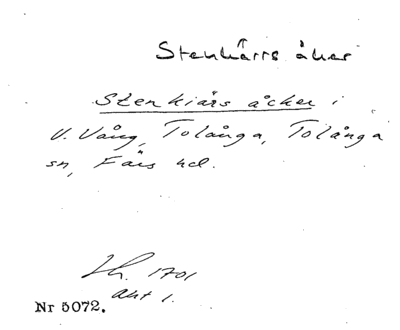 Stenkärrs åker
Stenkiärs åcker i
V. Vång, Tolånga, Tolånga
sn, Färs hd.
Lh. 1701
Akt 1.
Nr 5072.